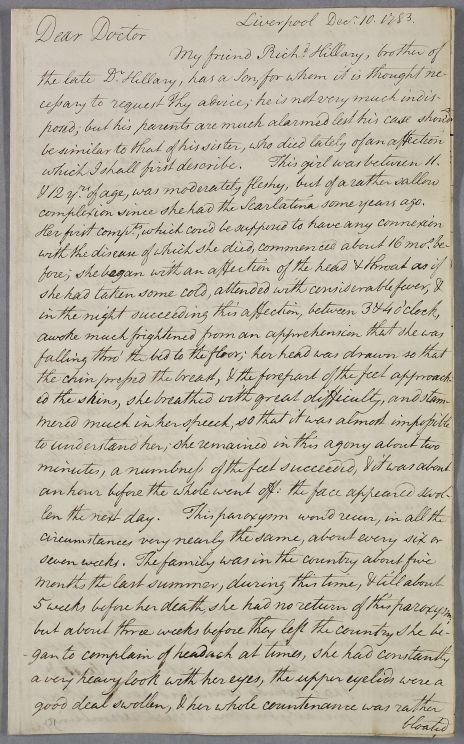 Liverpool Decr. 10. 1783.
Dear Doctor
My friend Richd. Hillary, brother of
the late Dr Hillary, has a Son, for whom it is thought ne-
cessary to request thy advice; he is not very much indis-
posed, but his parents are much alarmed lest his case should
be similar to that of his sister, who died lately of an affection
which I shall first describe. This girl was between 11.
& 12 yrs. of age, was moderately fleshy, but of a rather sallow
complexion since she had the Scarlatina some years ago.
Her first compt., which could be supposed to have any connexion
with the disease of which she died, commenced about 16 mos. be-
fore; she began with an affection of the head & throat as if
she had taken some cold, attended with considerable fever, &
in the night succeeding this affection, between 3 & 4 o'clock,
awoke much frightened from an apprehension that she was
falling thro' the bed to the floor; her head was drawn so that
the chin pressed the breast, & the forepart of the feet approach-
ed the shins, she breathed with great difficulty, and stam-
mered much in her speech, so that it was almost impossible
to understand her; she remained in this agony about two
minutes, a numbness of the feet succeeded, & it was about
an hour before the whole went off: the face appeared swol-
len the next day. This paroxysm would recur, in all the
circumstances very nearly the same, about every six or
seven weeks. The family was in the country about five
months the last summer, during this time, & till about
5 weeks before her death, she had no return of this paroxysm,
but about three weeks before they left the country she be-
gan to complain of headach at times, she had constantly
a very heavy look with her eyes, the upper eyelids were a
good deal swollen, & her whole countenance was rather
bloated